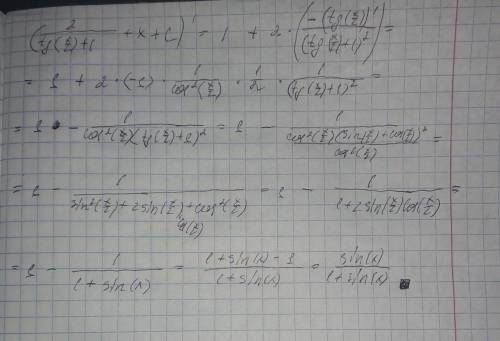 (2/(tg(x/2)+1) + x + C)' = 1 + 2·(-(tg(x/2))'/(tg(x/2)+1)²) =
= 1 + 2·(-1)·1/cos²(x/2)·1/2·1/(tg(x/2)+1)² =
= 1 - 1/(cos²(x/2)(tg(x/2)+1)²) = 1 - 1/(cos²(x/2)(sin(x/2)+cos(x/2))²/cos²(x/2)) =
= 1 - 1/(sin²(x/2)+2sin(x/2)cos(x/2)+cos²(x/2)) = 1 - 1/(1+2sin(x/2)cos(x/2)) =
= 1 - 1/(1+sin(x)) = (1+sin(x)-1)/(1+sin(x)) = sin(x)/(1+sin(x))